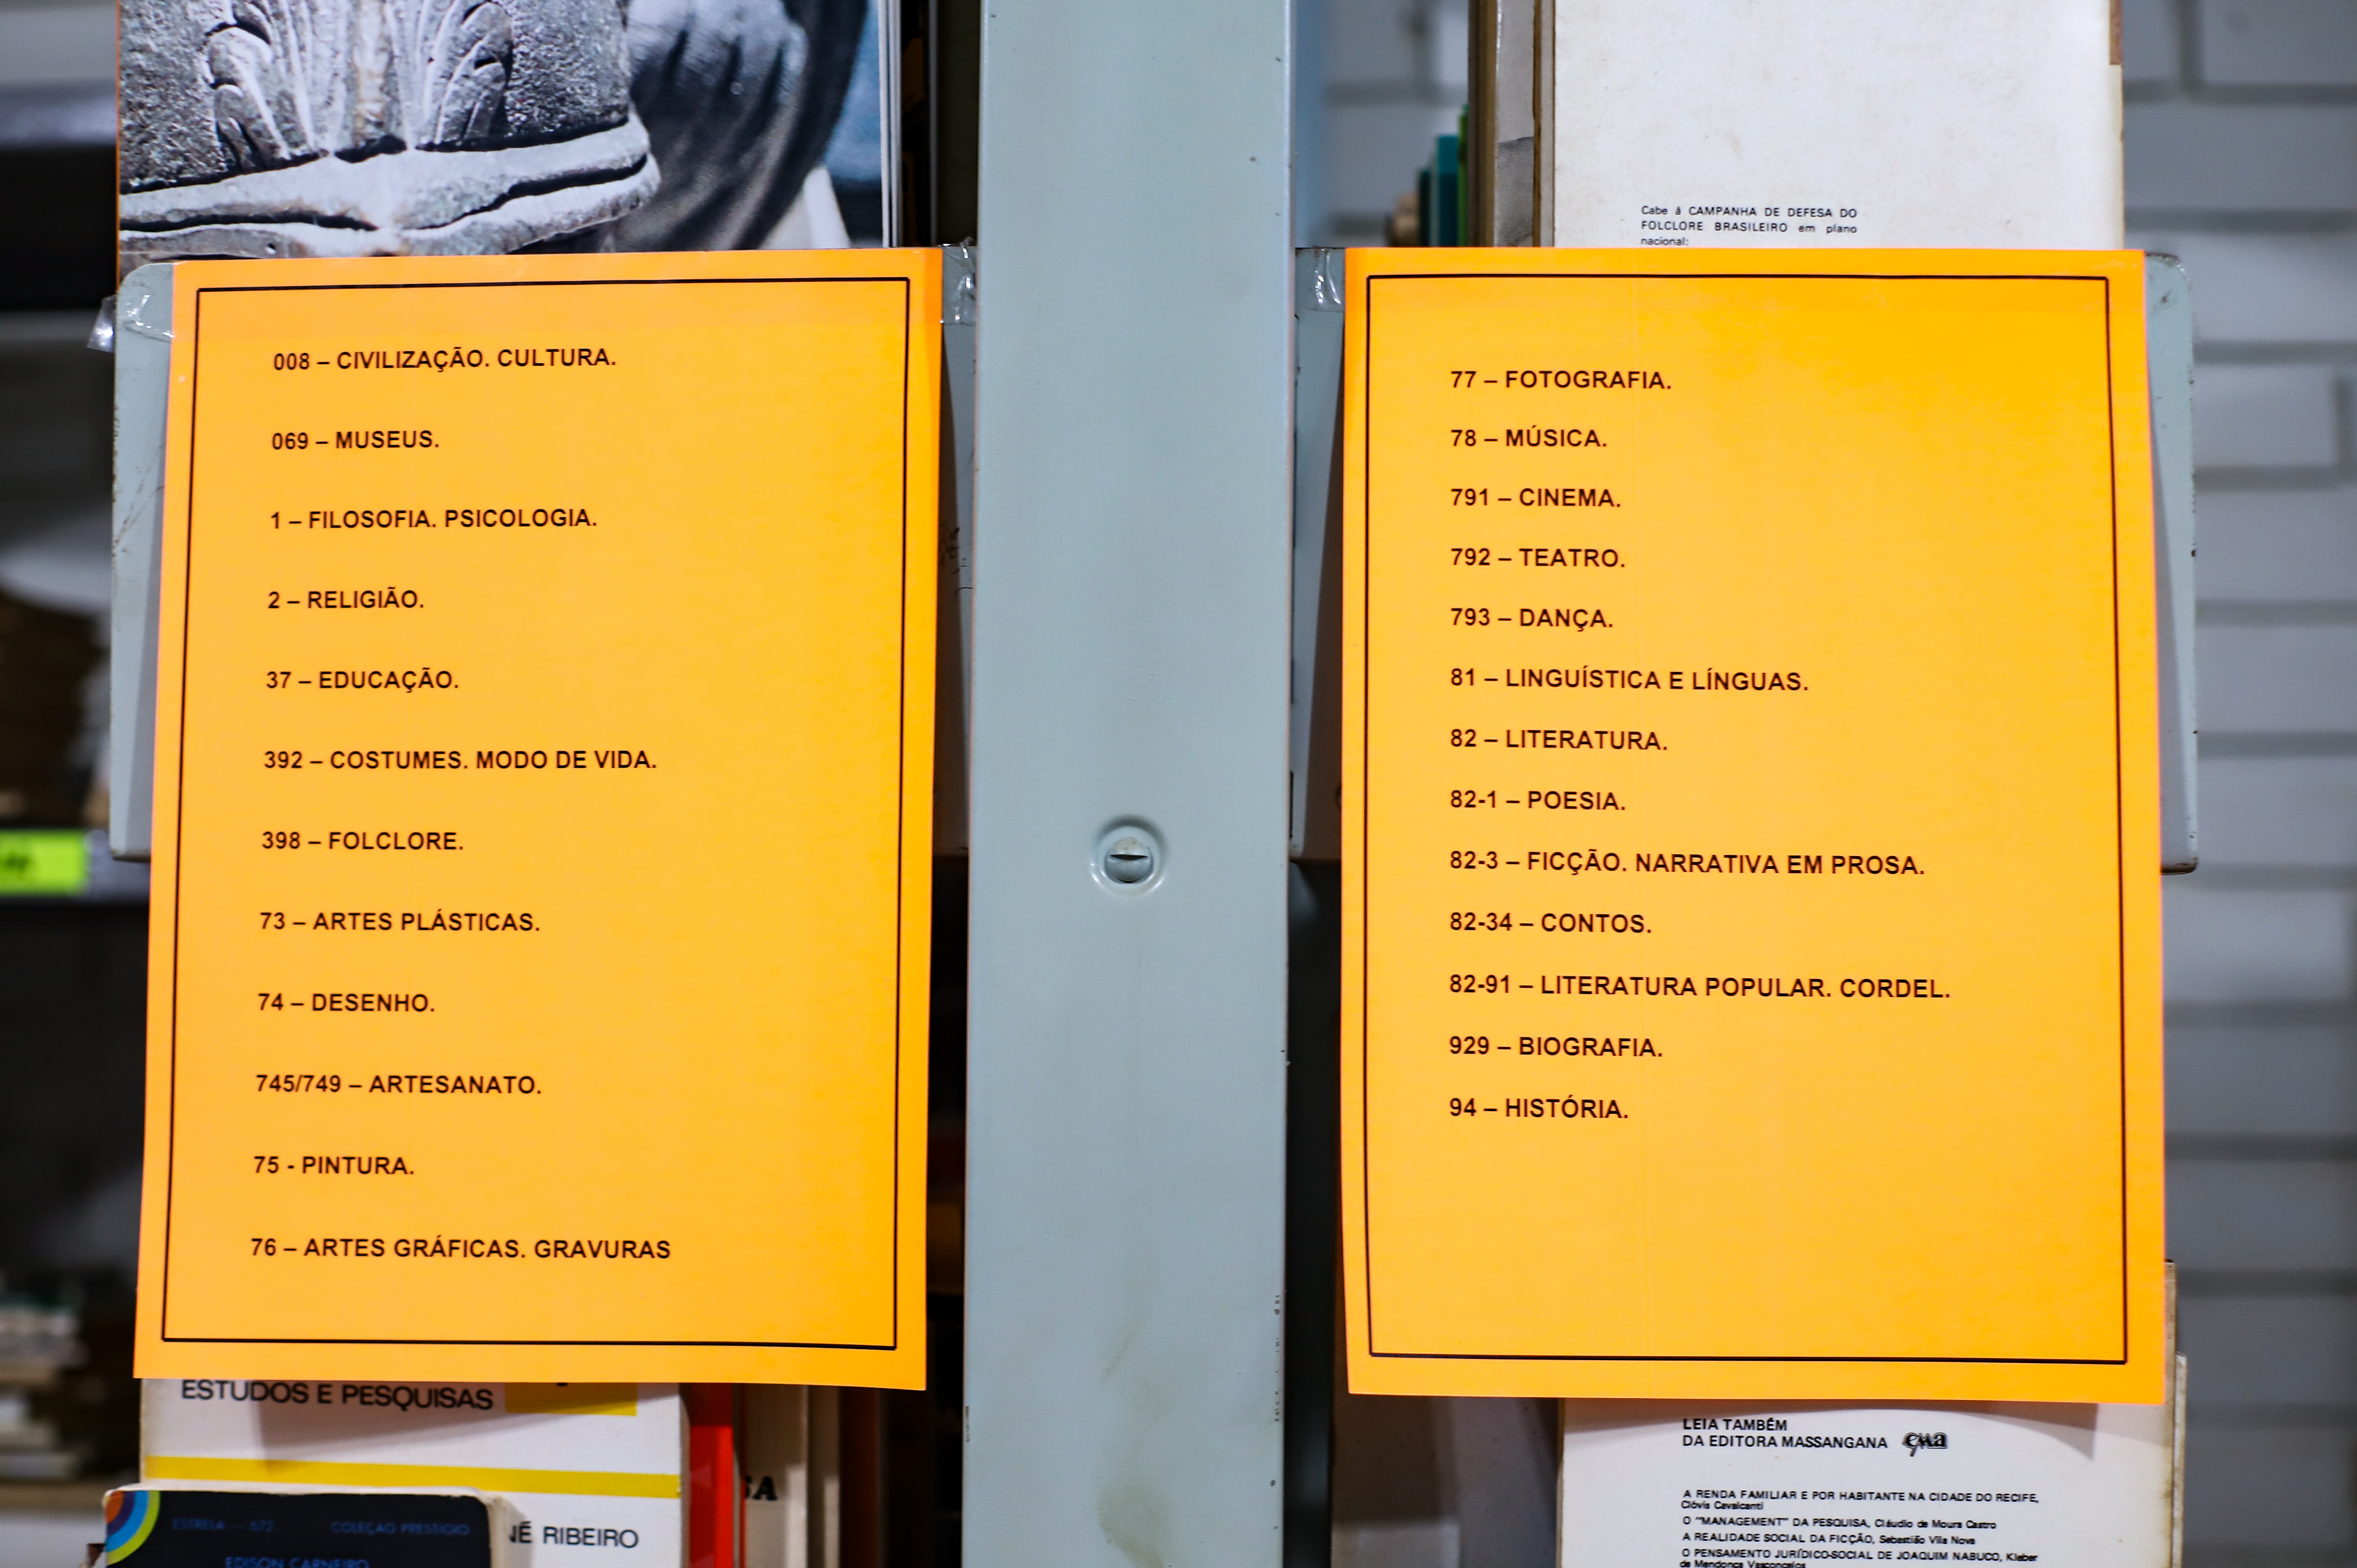 008 – CIVILIZAÇÃO. CULTURA.
069 – MUSEUS.
1 – FILOSOFIA. PSICOLOGIA.
2 – RELIGIÃO.
37 – EDUCAÇÃO.
392 – COSTUMES. MODO DE VIDA.
398 – FOLCLORE.
73 – ARTES PLÁSTICAS.
74 – DESENHO.
745/749 – ARTESANATO.
75 - PINTURA.
76 – ARTES GRÁFICAS. GRAVURAS
ESTUDOS E PESQUISAS
NÉ RIBEIRO
ESTRELA — 672 COLEÇÃO PRESTÍGIO
EDISON CARNEIRO
Cabe à CAMPANHA DE DEFESA DO
FOLCLORE BRASILEIRO em plano
nacional:
77 – FOTOGRAFIA.
78 – MÚSICA.
791 – CINEMA.
792 – TEATRO.
793 – DANÇA.
81 – LINGUÍSTICA E LÍNGUAS.
82 – LITERATURA.
82-1 – POESIA.
82-3 – FICÇÃO. NARRATIVA EM PROSA.
82-34 – CONTOS.
82-91 – LITERATURA POPULAR. CORDEL.
929 – BIOGRAFIA.
94 – HISTÓRIA.
LEIA TAMBÉM
DA EDITORA MASSANGANA ema
A RENDA FAMILIAR E POR HABITANTE NA CIDADE DO RECIFE,
Clóvis Cavalcanti
O "MANAGEMENT" DA PESQUISA, Cláudio de Moura Castro
A REALIDADE SOCIAL DA FICÇÃO, Sebastião Vila Nova
O PENSAMENTO JURÍDICO-SOCIAL DE JOAQUIM NABUCO, Kleber
de Mendonça Vasconcelos